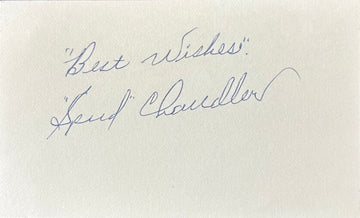 "Best Wishes".
"Spud" Chandler